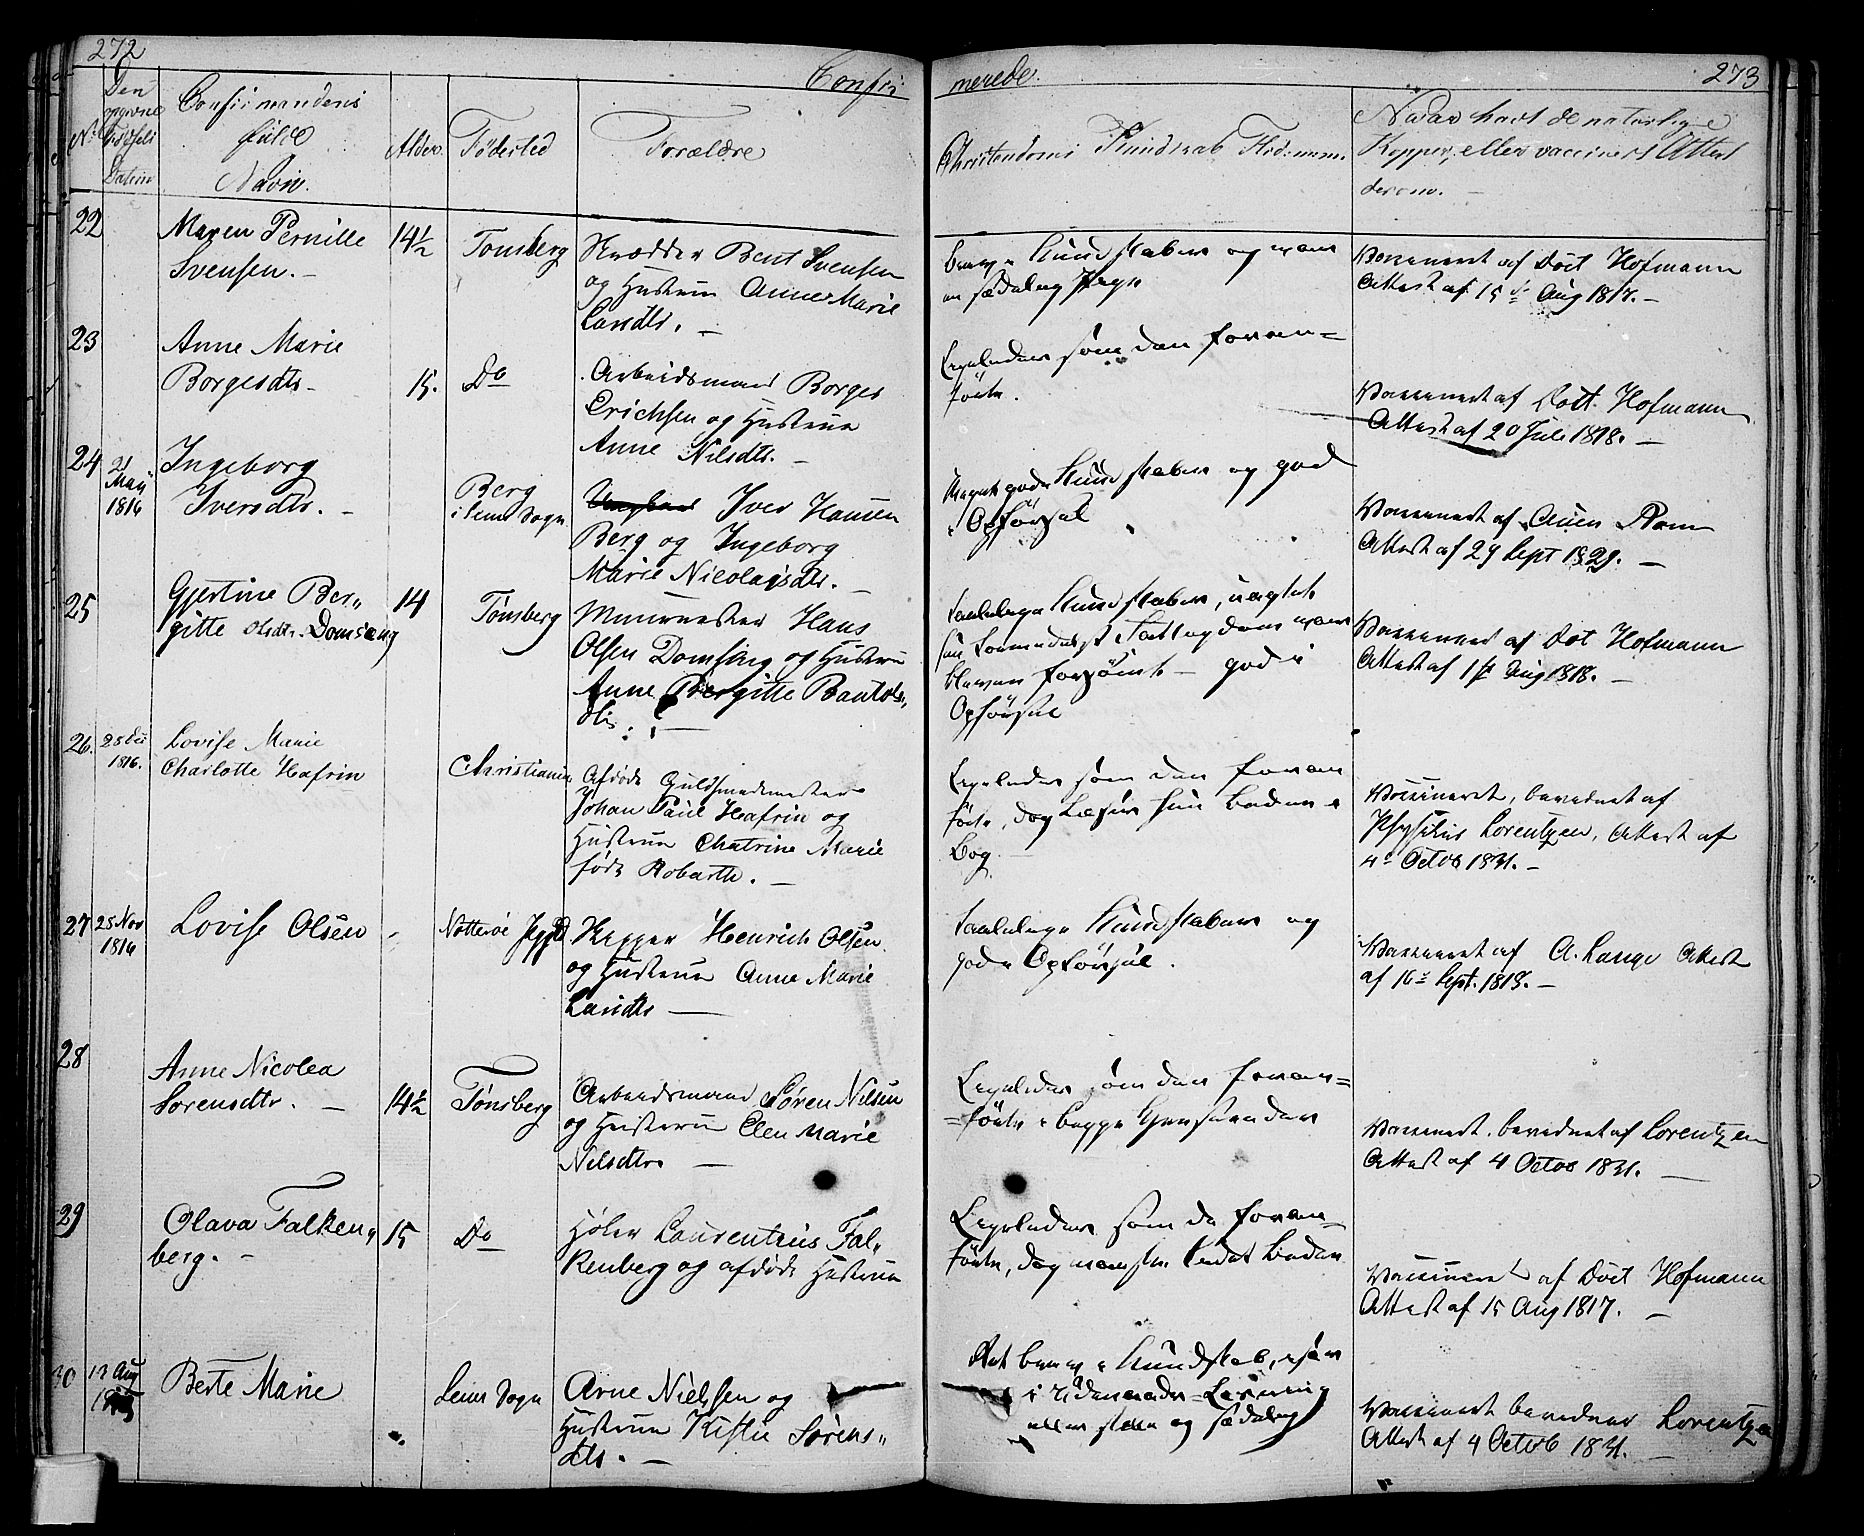 272
Confir
merede.
273
No
Den
opgivne
Fødsels
Datum
Confirmandens
fulde
Navn.
Alder.
Fødested
Forældre
Christendoms Kundskab
Naar havt de naturlige
Kopper, eller vaccineret Attest
derom. -
22
Maren Pernille
Svensen. -
14½
Tønsberg
Skrædder Bent Svensen
og Hustrue Anne Marie
Larsdtr. -
Kundskaber og
sædelig
Vaccineret af Doct Hofmann
Attest af 15de Aug 1817. -
23
Anne Marie
Borgesdtr -
15.
Do
Arbeidsmand Borges
Erichsen og Hustrue
Anne Nilsdtr. -
Ligeledes som den foran-
førte.
Vaccineret af Doct. Hofmann
Attest af 20 Juli 1818. -
24
21
May
1816
Ingeborg
Iversdtr. -
Berg
i Sems Sogn
Iver Hansen
Berg og Ingeborg
Marie Nicolaisdtr. -
Meget gode Kundskaber og god
Opførsel
Vaccineret af
Attest af 29 Sept 1829. -
25
Gjertine Ber„
gitte Olsdtr. Domsang
14
Tønsberg
Muurmester Hans
Olsen Domsang og Hustrue
Anne Bergitte Bantols„
dtr. -
Taalelige Kundskaber, uagtet
hun formedelst
bleven forsømt - god
Opførsel
Vaccineret af Doct Hofmann
Attest af 1ste Aug 1818. -
26.
1816.
Lovise Marie
Charlotte Hafrin
Christiania
Afdøde Guldsmedmester
Johan Paul Hafrin og
Hustrue Chatrine Marie
født Robarth. -
Ligeledes som den foran
førte, dog Læser hun bedre i
Bog. -
Vaccineret, bevidnet af
Physikus Lorentzen, Attest af
4de Octob 1831. -
27
25 Nov
1816
Lovise Olsen
-
Nøtterøe
Skipper Henrich Olsen
og Hustrue Anne Marie
Larsdtr -
Taalelige Kundskaber og
gode Opførsel.
Vaccineret af A. Lange Attest
af 16de Sept. 1818. -
28
Anne Nicolea
Sørensdtr. -
14½
Tønsberg
Arbeidsmand Søren Nilsen
og Hustrue Elen Marie
Nilsdtr. -
Ligeledes som den foran=
=førte i begge Henseender
Vaccineret. bevidnet af Lorentzen
Attest af 4 Octob 1831. -
29
Olava Falken„
berg. -
15
Do
Høker Laurentius Fal„
kenberg og afdøde Hustrue
Ligeledes som de foran-
førte, dog
Vaccineret af Doct Hofmann
Attest af 15 Aug 1817. -
30
13 Aug
Berte Marie
Sems Sogn
Arne Nielssen og
Hustrue Kistie Sørens„
dtr. -
Kundskab,
i Udenads-Læsning
og sædelig
Vaccineret bevidner Lorentzen
Attest af 4 Octob 1831. -